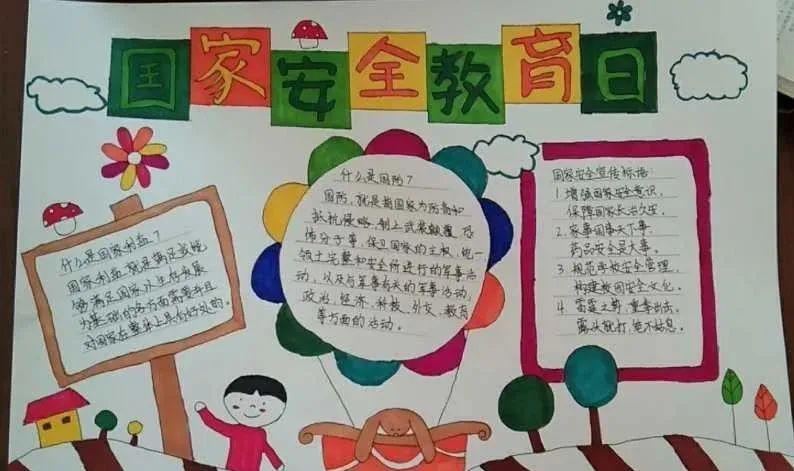 国家安全教育日
什么是国家利益？
国家利益就是满足或能
够满足国家以生存发展
为基础的各方面需要并且
对国家在整体上具有好处的。
什么是国防？
国防，就是指国家为防备和
抵抗侵略，制止武装颠覆
分子等，保卫国家的主权，统一
领土完整和安全所进行的军事活
动，以及与军事有关的军事活动，
政治，经济，科技，外交，教育
等方面的活动。
国家安全宣传标语：
1 增强国家安全意识，
保障国家长治久安。
2. 家事国事天下事，
药品安全是大事。
3 规范学校安全管理，
构建校园安全文化。
4 雷霆之势，重拳出击，
露头就打，绝不姑息。